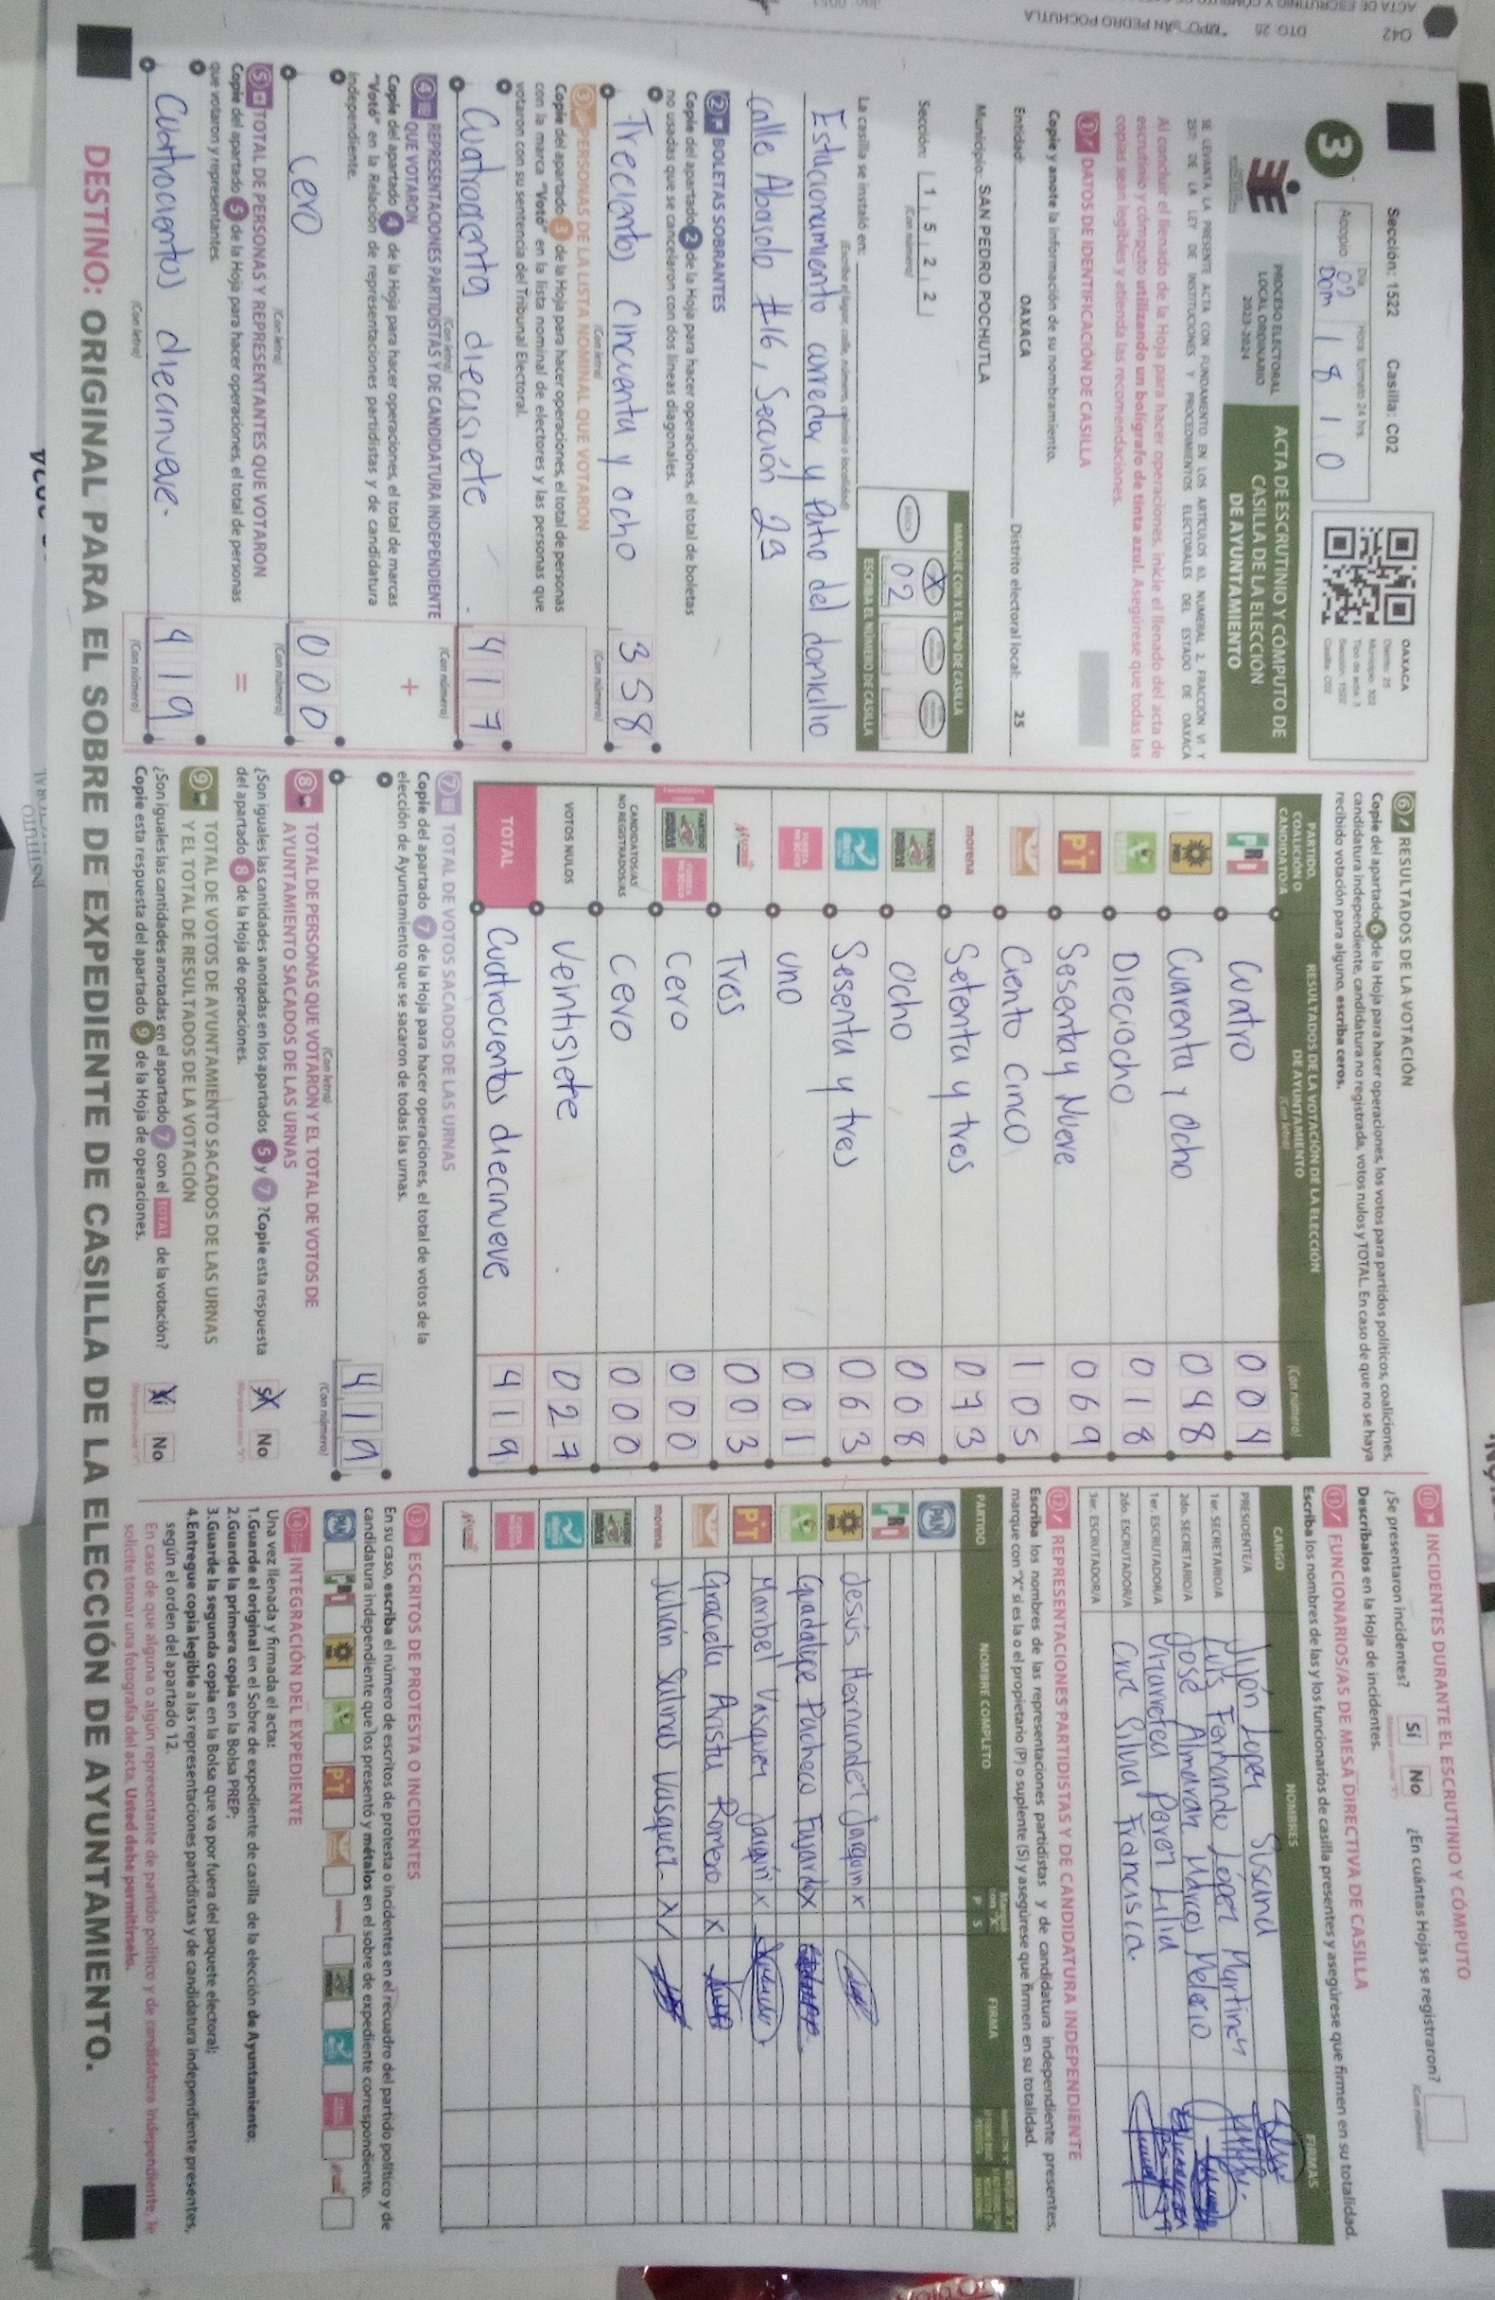 042 DTO 25 MPO SAN PEDRO POCHUTLA
Sección: 1522 Casilla: C02
3
Acopio
Día
Hora: formato 24 hrs.
02
Dom 18 10
OAXACA
Distrito: 25
Municipio: 302
Tipo de acta: 3
Sección: 1522
Casilla: C02
PROCESO ELECTORAL
LOCAL ORDINARIO
2023-2024
ACTA DE ESCRUTINIO Y CÓMPUTO DE
CASILLA DE LA ELECCIÓN
DE AYUNTAMIENTO
SE LEVANTA LA PRESENTE ACTA CON FUNDAMENTO EN LOS ARTÍCULOS 63, NUMERAL 2, FRACCIÓN VI Y
257 DE LA LEY DE INSTITUCIONES Y PROCEDIMIENTOS ELECTORALES DEL ESTADO DE OAXACA
Al concluir el llenado de la Hoja para hacer operaciones, inicie el llenado del acta de
escrutinio y cómputo utilizando un bolígrafo de tinta azul. Asegúrese que todas las
copias sean legibles y atienda las recomendaciones.
1 DATOS DE IDENTIFICACIÓN DE CASILLA
Copie y anote la información de su nombramiento.
Entidad: OAXACA Distrito electoral local: 25
Municipio: SAN PEDRO POCHUTLA
Sección: 1 5 2 2
(Con número)
MARQUE CON X EL TIPO DE CASILLA
X
02
ESCRIBA EL NÚMERO DE CASILLA
La casilla se instaló en:
(Escriba el lugar, calle, número, colonia o localidad)
Estacionamiento corredor y Patio del domicilio
calle Abasolo #16, Sección 2a
2 BOLETAS SOBRANTES
Copie del apartado 2 de la Hoja para hacer operaciones, el total de boletas
no usadas que se cancelaron con dos líneas diagonales.
Trecientos cincuenta y ocho 358
(Con letra) (Con número)
3 PERSONAS DE LA LISTA NOMINAL QUE VOTARON
Copie del apartado 3 de la Hoja para hacer operaciones, el total de personas
con la marca "Votó" en la lista nominal de electores y las personas que
votaron con su sentencia del Tribunal Electoral.
Cuatrocientos diecisiete 417
(Con letra) (Con número)
4 REPRESENTACIONES PARTIDISTAS Y DE CANDIDATURA INDEPENDIENTE
QUE VOTARON
Copie del apartado 4 de la Hoja para hacer operaciones, el total de marcas
"Votó" en la Relación de representaciones partidistas y de candidatura
independiente.
+
cero 000
(Con letra) (Con número)
5 TOTAL DE PERSONAS Y REPRESENTANTES QUE VOTARON
Copie del apartado 5 de la Hoja para hacer operaciones, el total de personas
que votaron y representantes.
=
Cuatrocientos diecinueve. 419
(Con letra) (Con número)
6 RESULTADOS DE LA VOTACIÓN
Copie del apartado 6 de la Hoja para hacer operaciones, los votos para partidos políticos, coaliciones,
candidatura independiente, candidatura no registrada, votos nulos y TOTAL. En caso de que no se haya
recibido votación para alguno, escriba ceros.
PARTIDO, COALICIÓN O CANDIDATO/A
RESULTADOS DE LA VOTACIÓN DE LA ELECCIÓN DE AYUNTAMIENTO
(Con letra) (Con número)
PRI Cuatro 004
PRD Cuarenta y Ocho 048
Dieciocho 018
PT Sesenta y Nueve 069
Ciento cinco 105
morena Setenta y tres 073
ocho 008
Sesenta y tres 063
uno 001
Tres 003
Cero 000
CANDIDATOS/AS NO REGISTRADOS/AS cero 000
VOTOS NULOS Veintisiete 027
TOTAL Cuatrocientos diecinueve 419
7 TOTAL DE VOTOS SACADOS DE LAS URNAS
Copie del apartado 7 de la Hoja para hacer operaciones, el total de votos de la
elección de Ayuntamiento que se sacaron de todas las urnas.
419
(Con letra) (Con número)
8 TOTAL DE PERSONAS QUE VOTARON Y EL TOTAL DE VOTOS DE
AYUNTAMIENTO SACADOS DE LAS URNAS
¿Son iguales las cantidades anotadas en los apartados 5 y 7? Copie esta respuesta
del apartado 8 de la Hoja de operaciones.
Sí No
9 TOTAL DE VOTOS DE AYUNTAMIENTO SACADOS DE LAS URNAS
Y EL TOTAL DE RESULTADOS DE LA VOTACIÓN
¿Son iguales las cantidades anotadas en el apartado 7 con el TOTAL de la votación?
Copie esta respuesta del apartado 9 de la Hoja de operaciones.
Sí No
10 INCIDENTES DURANTE EL ESCRUTINIO Y CÓMPUTO
¿Se presentaron incidentes? Sí No ¿En cuántas Hojas se registraron?
(Con número)
Descríbalos en la Hoja de incidentes.
11 FUNCIONARIOS/AS DE MESA DIRECTIVA DE CASILLA
Escriba los nombres de las y los funcionarios de casilla presentes y asegúrese que firmen en su totalidad.
CARGO NOMBRES FIRMAS
PRESIDENTE/A Jijón Lopez Susana
1er. SECRETARIO/A Luis Fernando López Martinez
2do. SECRETARIO/A José Almaraz Marcos Melecio
1er. ESCRUTADOR/A Lilia
2do. ESCRUTADOR/A Cruz Silvia Francisca.
3er. ESCRUTADOR/A
12 REPRESENTACIONES PARTIDISTAS Y DE CANDIDATURA INDEPENDIENTE
Escriba los nombres de las representaciones partidistas y de candidatura independiente presentes,
marque con "X" si es la o el propietario (P) o suplente (S) y asegúrese que firmen en su totalidad.
PARTIDO NOMBRE COMPLETO P S FIRMA
PAN
PRI
PRD Jesús Hernandez Joaquin X
Guadalupe Pacheco Fajardo X
PT Maribel Vasquez Joaquin X
Graciela Aristu Romero X
morena Julián Salinas Vasquez X
13 ESCRITOS DE PROTESTA O INCIDENTES
En su caso, escriba el número de escritos de protesta o incidentes en el recuadro del partido político y de
candidatura independiente que los presentó y métalos en el sobre de expediente correspondiente.
PAN PRI PRD PT morena
14 INTEGRACIÓN DEL EXPEDIENTE
Una vez llenada y firmada el acta:
1.Guarde el original en el Sobre de expediente de casilla de la elección de Ayuntamiento;
2.Guarde la primera copia en la Bolsa PREP;
3.Guarde la segunda copia en la Bolsa que va por fuera del paquete electoral;
4.Entregue copia legible a las representaciones partidistas y de candidatura independiente presentes,
según el orden del apartado 12.
En caso de que alguna o algún representante de partido político y de candidatura independiente, le
solicite tomar una fotografía del acta, Usted debe permitírselo.
DESTINO: ORIGINAL PARA EL SOBRE DE EXPEDIENTE DE CASILLA DE LA ELECCIÓN DE AYUNTAMIENTO.